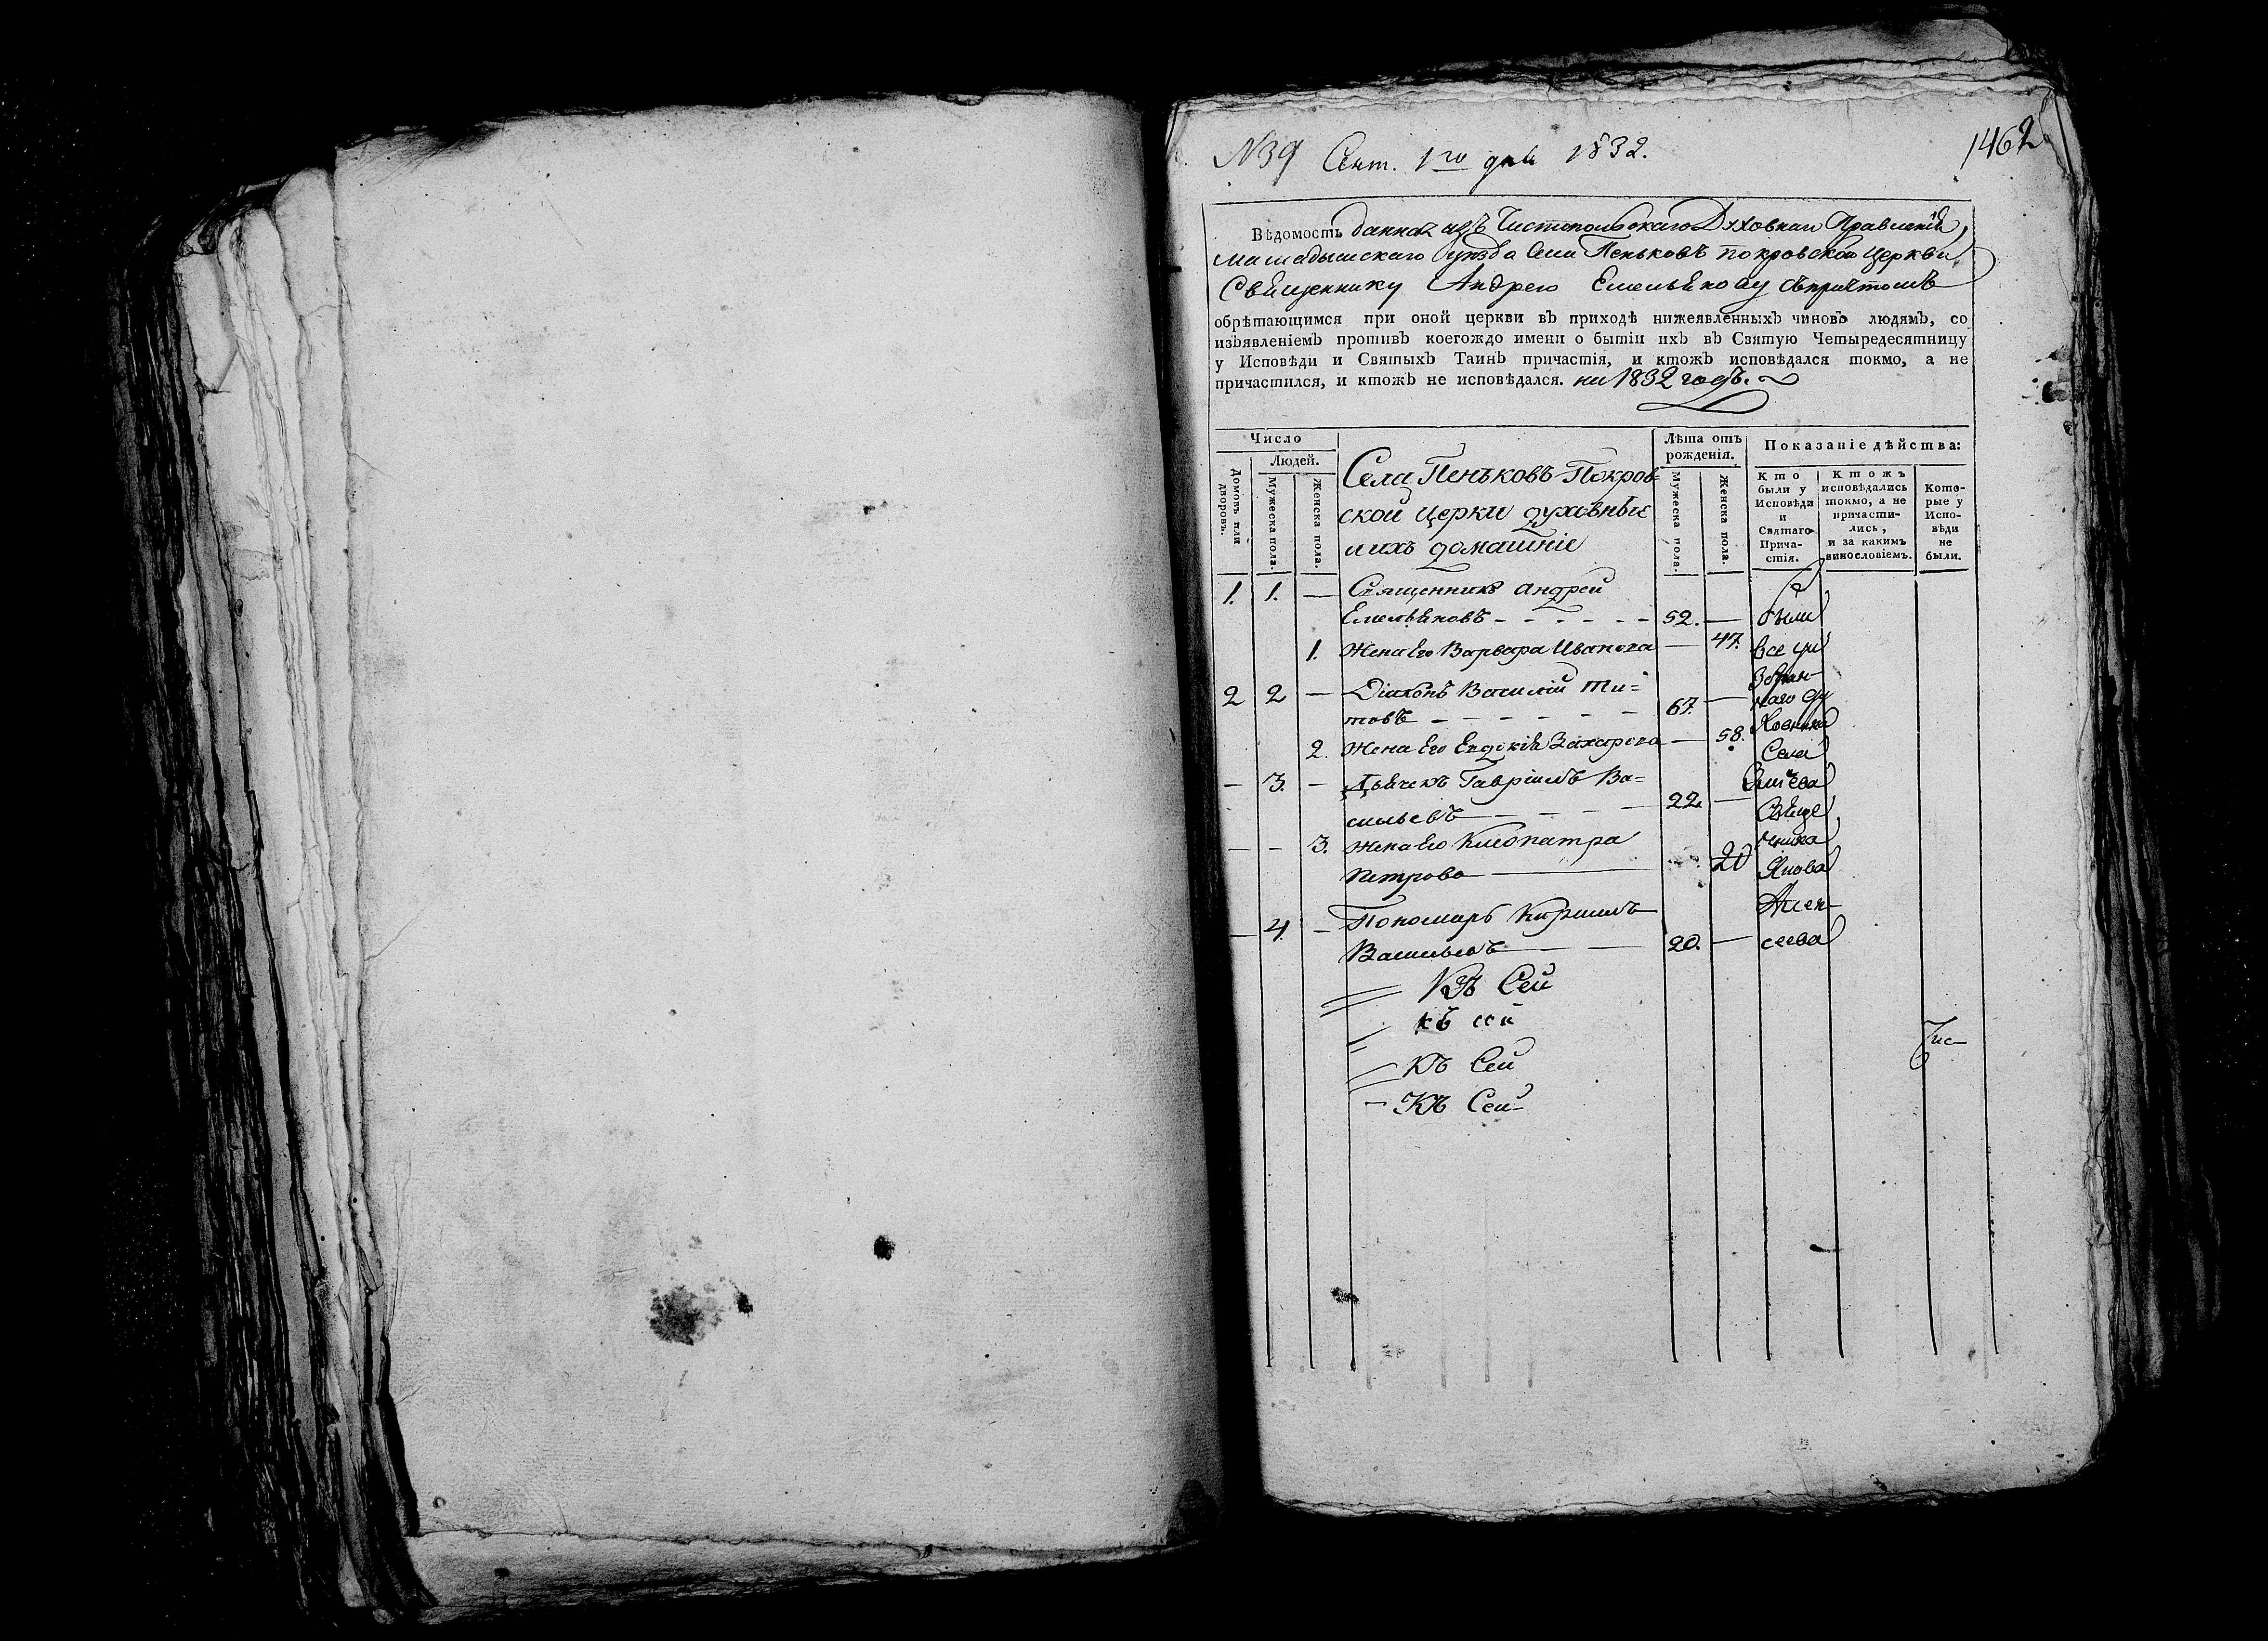 №39 Сент. 1го дня 1832.
1462
Вѣдомость данная изъ Чистопольскаго Духовнаго Правленія,
Мамадышскаго уѣзда Села Пеньковъ покровской церкви
Священнику Андрею Емельянову съпричтомъ
обрѣтающимся при оной церкви въ приходѣ нижеявленныхъ чиновъ людямъ, со
изъявленіемъ противъ коегождо имени о бытіи ихъ въ Святую Четыредесятницу
у Исповѣди и Святыхъ Таинъ причастія, и ктожъ исповѣдался токмо, а не
причастился, и ктожъ не исповѣдался. на 1832 годъ.
Число
Людей.
Домовъ или дворовъ.
Мужеска пола.
Женска пола.
Села Пеньковъ Покров=
ской церкви духовные
и ихъ домашніе
Лѣта отъ
рожденія.
Мужеска пола.
Женска пола.
Показаніе дѣйства:
Кто
были у
Исповѣди
и
Святаго
Прича-
стія.
Ктожъ
исповѣдались
токмо, а не
причасти-
лись,
и за какимъ
винословіемъ.
Кото-
рые у
Испо-
вѣди
не
были.
1. 1. — Священникъ Андрей
Емельяновъ - - - - - - 52. — были
1. Жена Его Варвара Иванова — 47. все
2 2 — Діаконъ Василій Ти=
товъ - - - - - - 67. —
2. Жена Его Евдокія Захарова — 58. Села
— 3. — Дьячекъ Гавріилъ Ва=
сильевъ - - - 22. —
— — 3. Жена Его Клеопатра
Петрова — 20
— 4. — Пономарь Кирилъ
Васильевъ — 20. — сеева
Къ Сей
къ сей
Къ Сей
— Къ Сей
Чис-